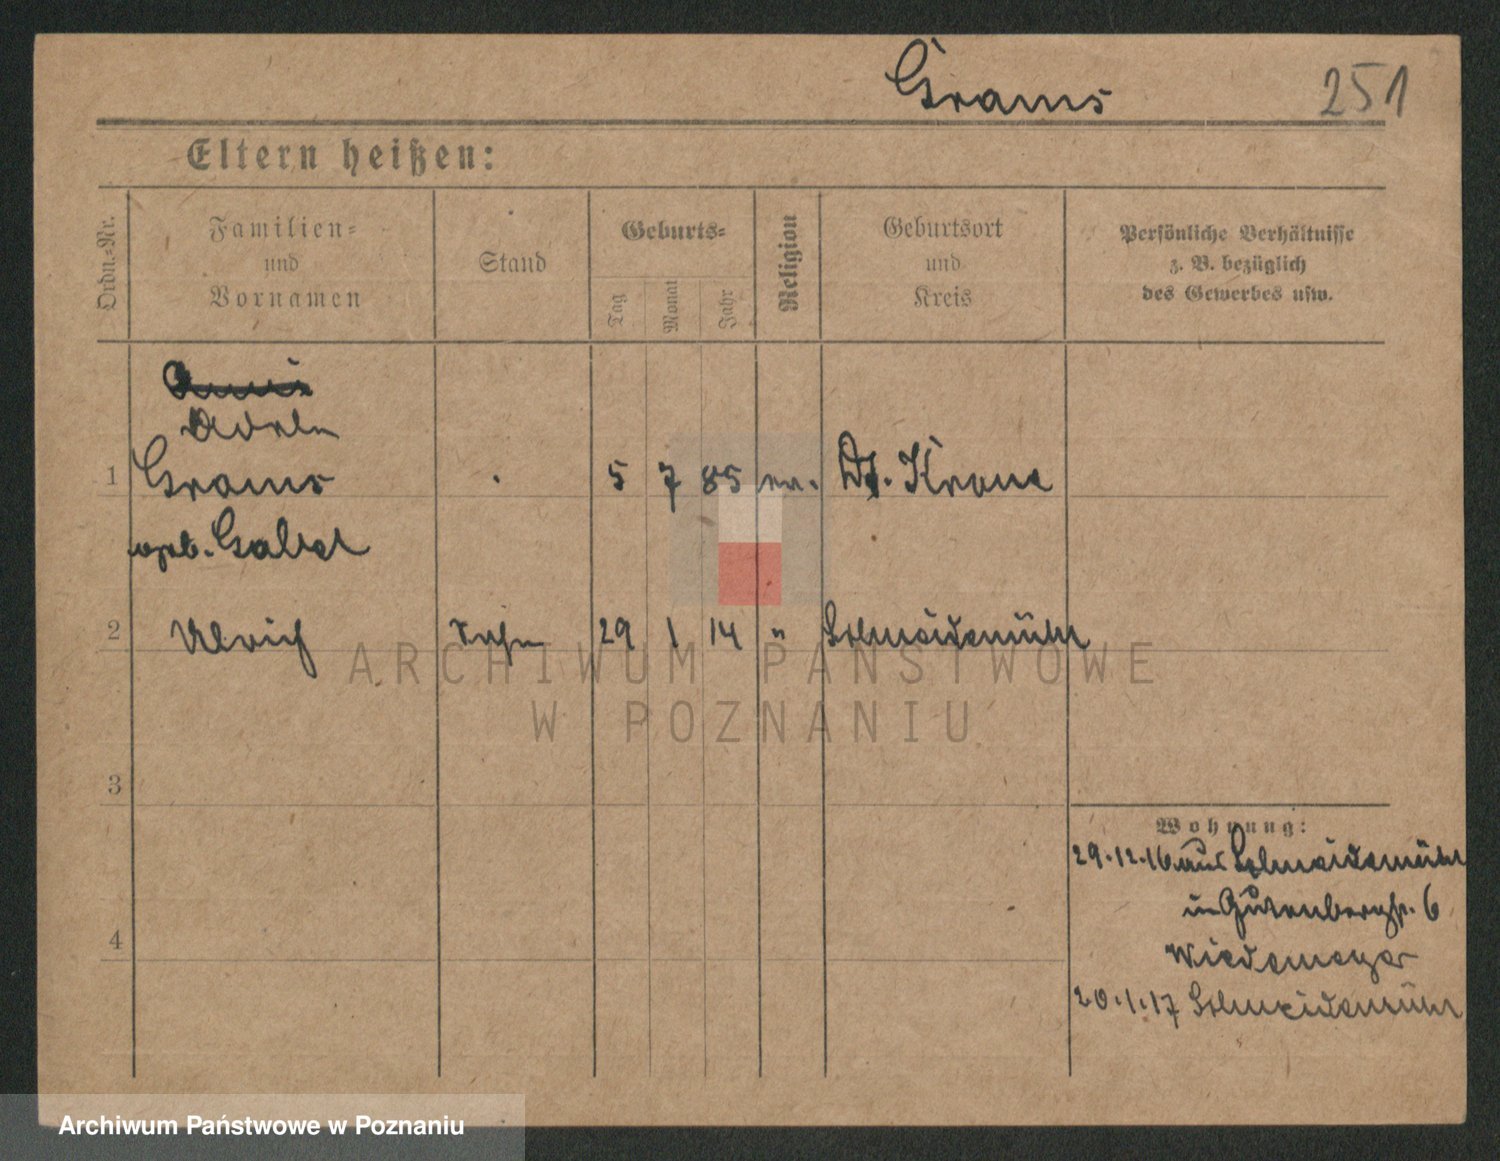 Grams 251
Eltern heißen:
Ordn.-Nr. Familien- und Vornamen Stand Geburts- Tag Monat Jahr Religion Geburtsort und Kreis Persönliche Verhältnisse z. B. bezüglich des Gewerbes usw.
Adele
1 Grams 5 7 85 ev. Dt. Krone
geb.
2 Ulrich Sohn 29 1 14 " Schneidemühl
ARCHIWUM PAŃSTWOWE
W POZNANIU
3
Wohnung:
29.12.16 aus Schneidemühl
in Gutenbergstr. 6
4
Wiedemeyer
20.1.17 Schneidemühl
Archiwum Państwowe w Poznaniu